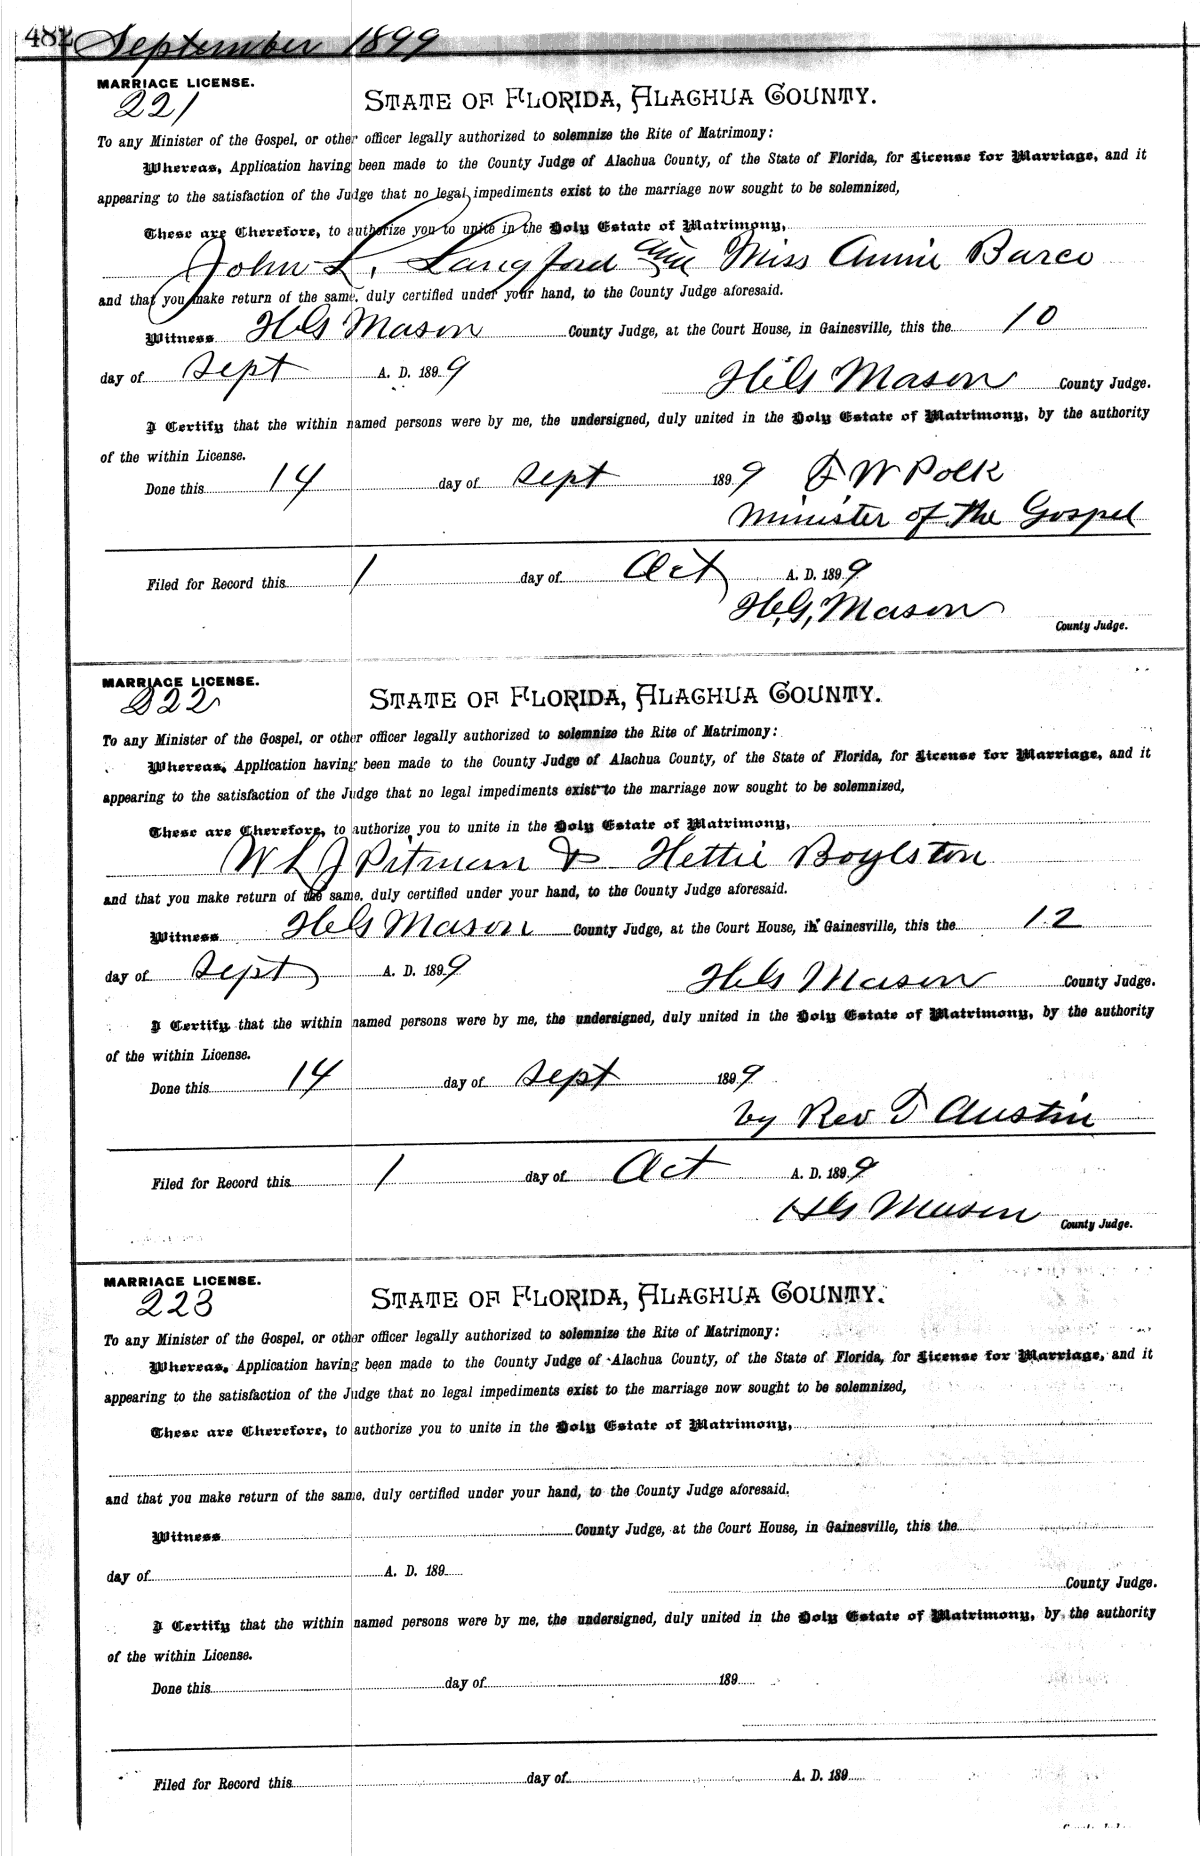 482 September 1899
MARRIAGE LICENSE.
221
STATE OF FLORIDA, ALACHUA COUNTY.
To any Minister of the Gospel, or other officer legally authorized to solemnize the Rite of Matrimony:
Whereas, Application having been made to the County Judge of Alachua County, of the State of Florida, for License for Marriage, and it
appearing to the satisfaction of the Judge that no legal impediments exist to the marriage now sought to be solemnized,
These are Therefore, to authorize you to unite in the Holy Estate of Matrimony,
John L. Langford and Miss Annie Barco
and that you make return of the same, duly certified under your hand, to the County Judge aforesaid.
Witness H G Mason County Judge, at the Court House, in Gainesville, this the 10
day of Sept A. D. 1899 H G Mason County Judge.
I Certify that the within named persons were by me, the undersigned, duly united in the Holy Estate of Matrimony, by the authority
of the within License.
Done this 14 day of Sept 1899 F W Polk
Minister of the Gospel
Filed for Record this 1 day of Oct A. D. 1899
H, G, Mason
County Judge.
MARRIAGE LICENSE.
222
STATE OF FLORIDA, ALACHUA COUNTY.
To any Minister of the Gospel, or other officer legally authorized to solemnize the Rite of Matrimony:
Whereas, Application having been made to the County Judge of Alachua County, of the State of Florida, for License for Marriage, and it
appearing to the satisfaction of the Judge that no legal impediments exist to the marriage now sought to be solemnized,
These are Therefore, to authorize you to unite in the Holy Estate of Matrimony,
W L J Pitman & Hettie Boylston
and that you make return of the same, duly certified under your hand, to the County Judge aforesaid.
Witness H G Mason County Judge, at the Court House, in Gainesville, this the 12
day of Sept A. D. 1899 H G Mason County Judge.
I Certify that the within named persons were by me, the undersigned, duly united in the Holy Estate of Matrimony, by the authority
of the within License.
Done this 14 day of Sept 1899
by Rev T Austin
Filed for Record this 1 day of Oct A. D. 1899
H G Mason
County Judge.
MARRIAGE LICENSE.
223
STATE OF FLORIDA, ALACHUA COUNTY.
To any Minister of the Gospel, or other officer legally authorized to solemnize the Rite of Matrimony:
Whereas, Application having been made to the County Judge of Alachua County, of the State of Florida, for License for Marriage, and it
appearing to the satisfaction of the Judge that no legal impediments exist to the marriage now sought to be solemnized,
These are Therefore, to authorize you to unite in the Holy Estate of Matrimony,
and that you make return of the same, duly certified under your hand, to the County Judge aforesaid.
Witness County Judge, at the Court House, in Gainesville, this the
day of A. D. 189
County Judge.
I Certify that the within named persons were by me, the undersigned, duly united in the Holy Estate of Matrimony, by the authority
of the within License.
Done this day of 189
Filed for Record this day of A. D. 189